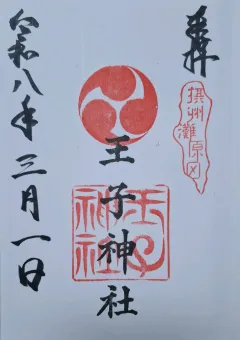 奉拝
摂州
灘原田
王子神社
王子
神社
令和八年三月一日